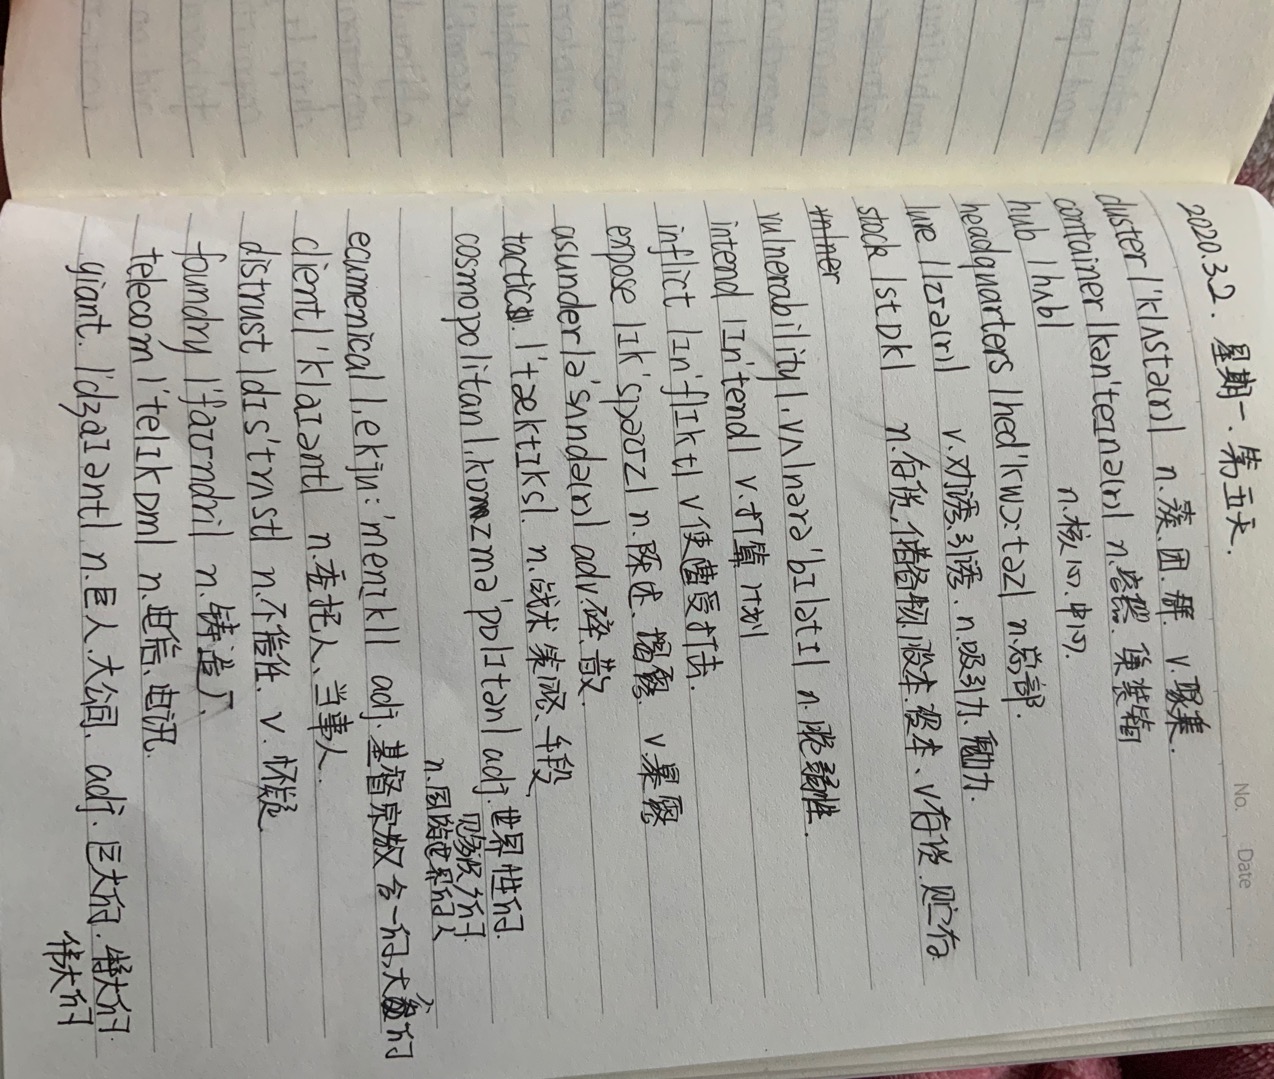 2020.3.2. 星期一. 第五天.
No.
Date
cluster /'klʌstə(r)/ n.簇.团.群. v.聚集.
container /kən'teɪnə(r)/ n.容器. 集装箱
hub /hʌb/ n.核心.中心.
headquarters /hed'kwɔːtəz/ n.总部.
lure /lʊə(r)/ v.劝诱.引诱. n.吸引力.
stock /stɒk/ n.存货.储备物.股本.资本、v.存货.贮存
vulnerability /ˌvʌlnərə'bɪlətɪ/ n.脆弱性.
intend /ɪn'tend/ v.打算 计划
inflict /ɪn'flɪkt/ v.使遭受打击.
expose /ɪk'spəʊz/ n.陈述、揭露. v.暴露
asunder /ə'sʌndə(r)/ adv.碎.散.
tactics. /'tæktɪks/. n.战术 策略、手段
cosmopolitan /ˌkɒzmə'pɒlɪtən/ adj.世界性的.
见多识广的.
n.周游世界的人
ecumenical /ˌekjuː'menɪkl/ adj.基督宗教合一的,大公的
client /'klaɪənt/ n.委托人、当事人.
distrust /dɪs'trʌst/ n.不信任. v.怀疑
foundry /'faʊndri/ n.铸造厂.
telecom /'telɪkɒm/ n.电信.电讯.
giant. /'dʒaɪənt/ n.巨人.大公司. adj.巨大的.特大的.
伟大的